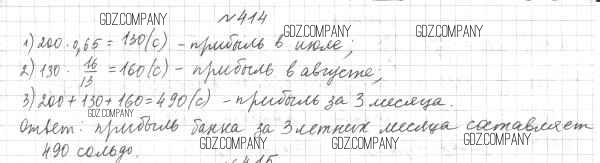 GDZ.COMPANY №414
GDZ.COMPANY GDZ.COMPANY
1) 200 · 0,65 = 130 (с) - прибыль в июле;
2) 130 · 16/13 = 160 (с) - прибыль в августе;
3) 200 + 130 + 160 = 490 (с) - прибыль за 3 месяца.
GDZ.COMPANY
Ответ: прибыль банка за 3 летних месяца составляет
490 сольдо.
GDZ.COMPANY GDZ.COMPANY GDZ.COMPANY
№415